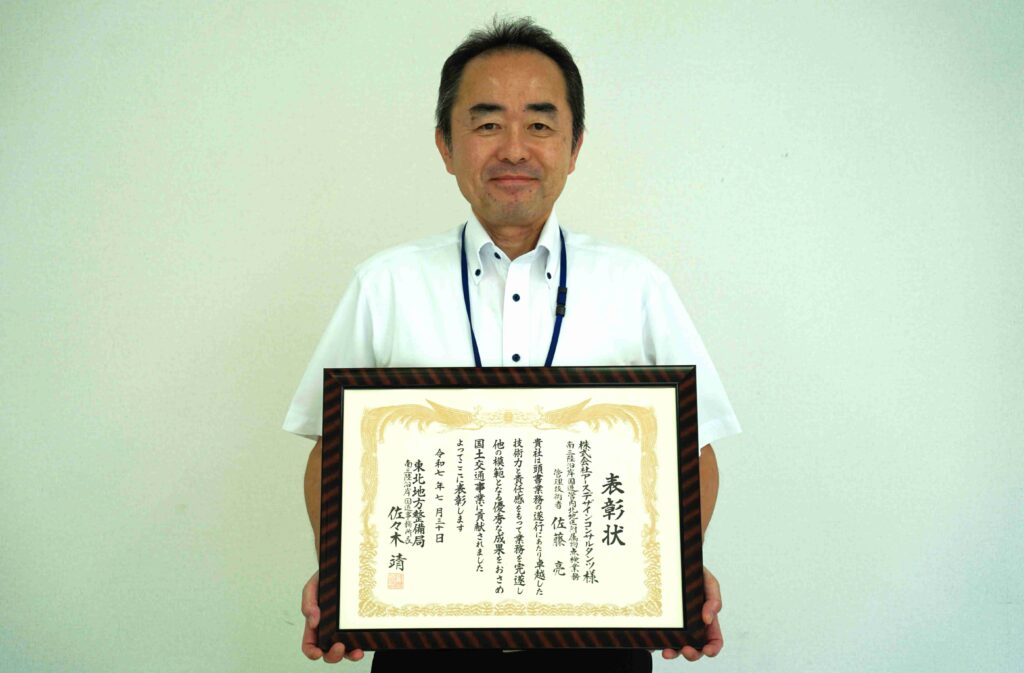 表彰状
株式会社アースデザインコンサルタンツ様
南三陸沿岸国道管内北地区付属物点検業務
管理技術者 佐藤 亮
貴社は頭書業務の遂行にあたり卓越した
技術力と責任感をもって業務を完遂し
他の模範となる優秀な成果をおさめ
国土交通事業に貢献されました
よってここに表彰します
令和七年七月三十日
東北地方整備局
南三陸沿岸国道事務所長
佐々木 靖